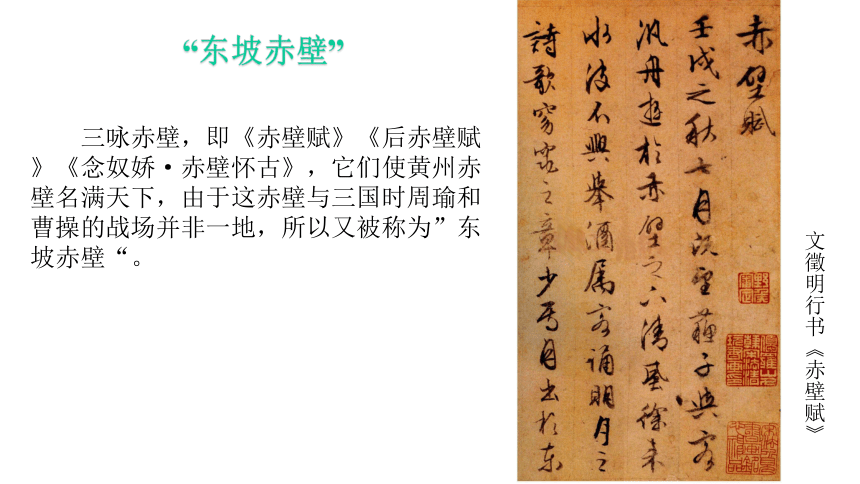 “东坡赤壁”
三咏赤壁，即《赤壁赋》《后赤壁赋
》《念奴娇·赤壁怀古》，它们使黄州赤
壁名满天下，由于这赤壁与三国时周瑜和
曹操的战场并非一地，所以又被称为”东
坡赤壁“。
赤壁賦
壬戌之秋七月既望蘇子與客
汎舟遊於赤壁之下清風徐来
水波不興舉酒属客誦明月之
詩歌窈窕之章少焉月出於东
文徵明行书《赤壁赋》